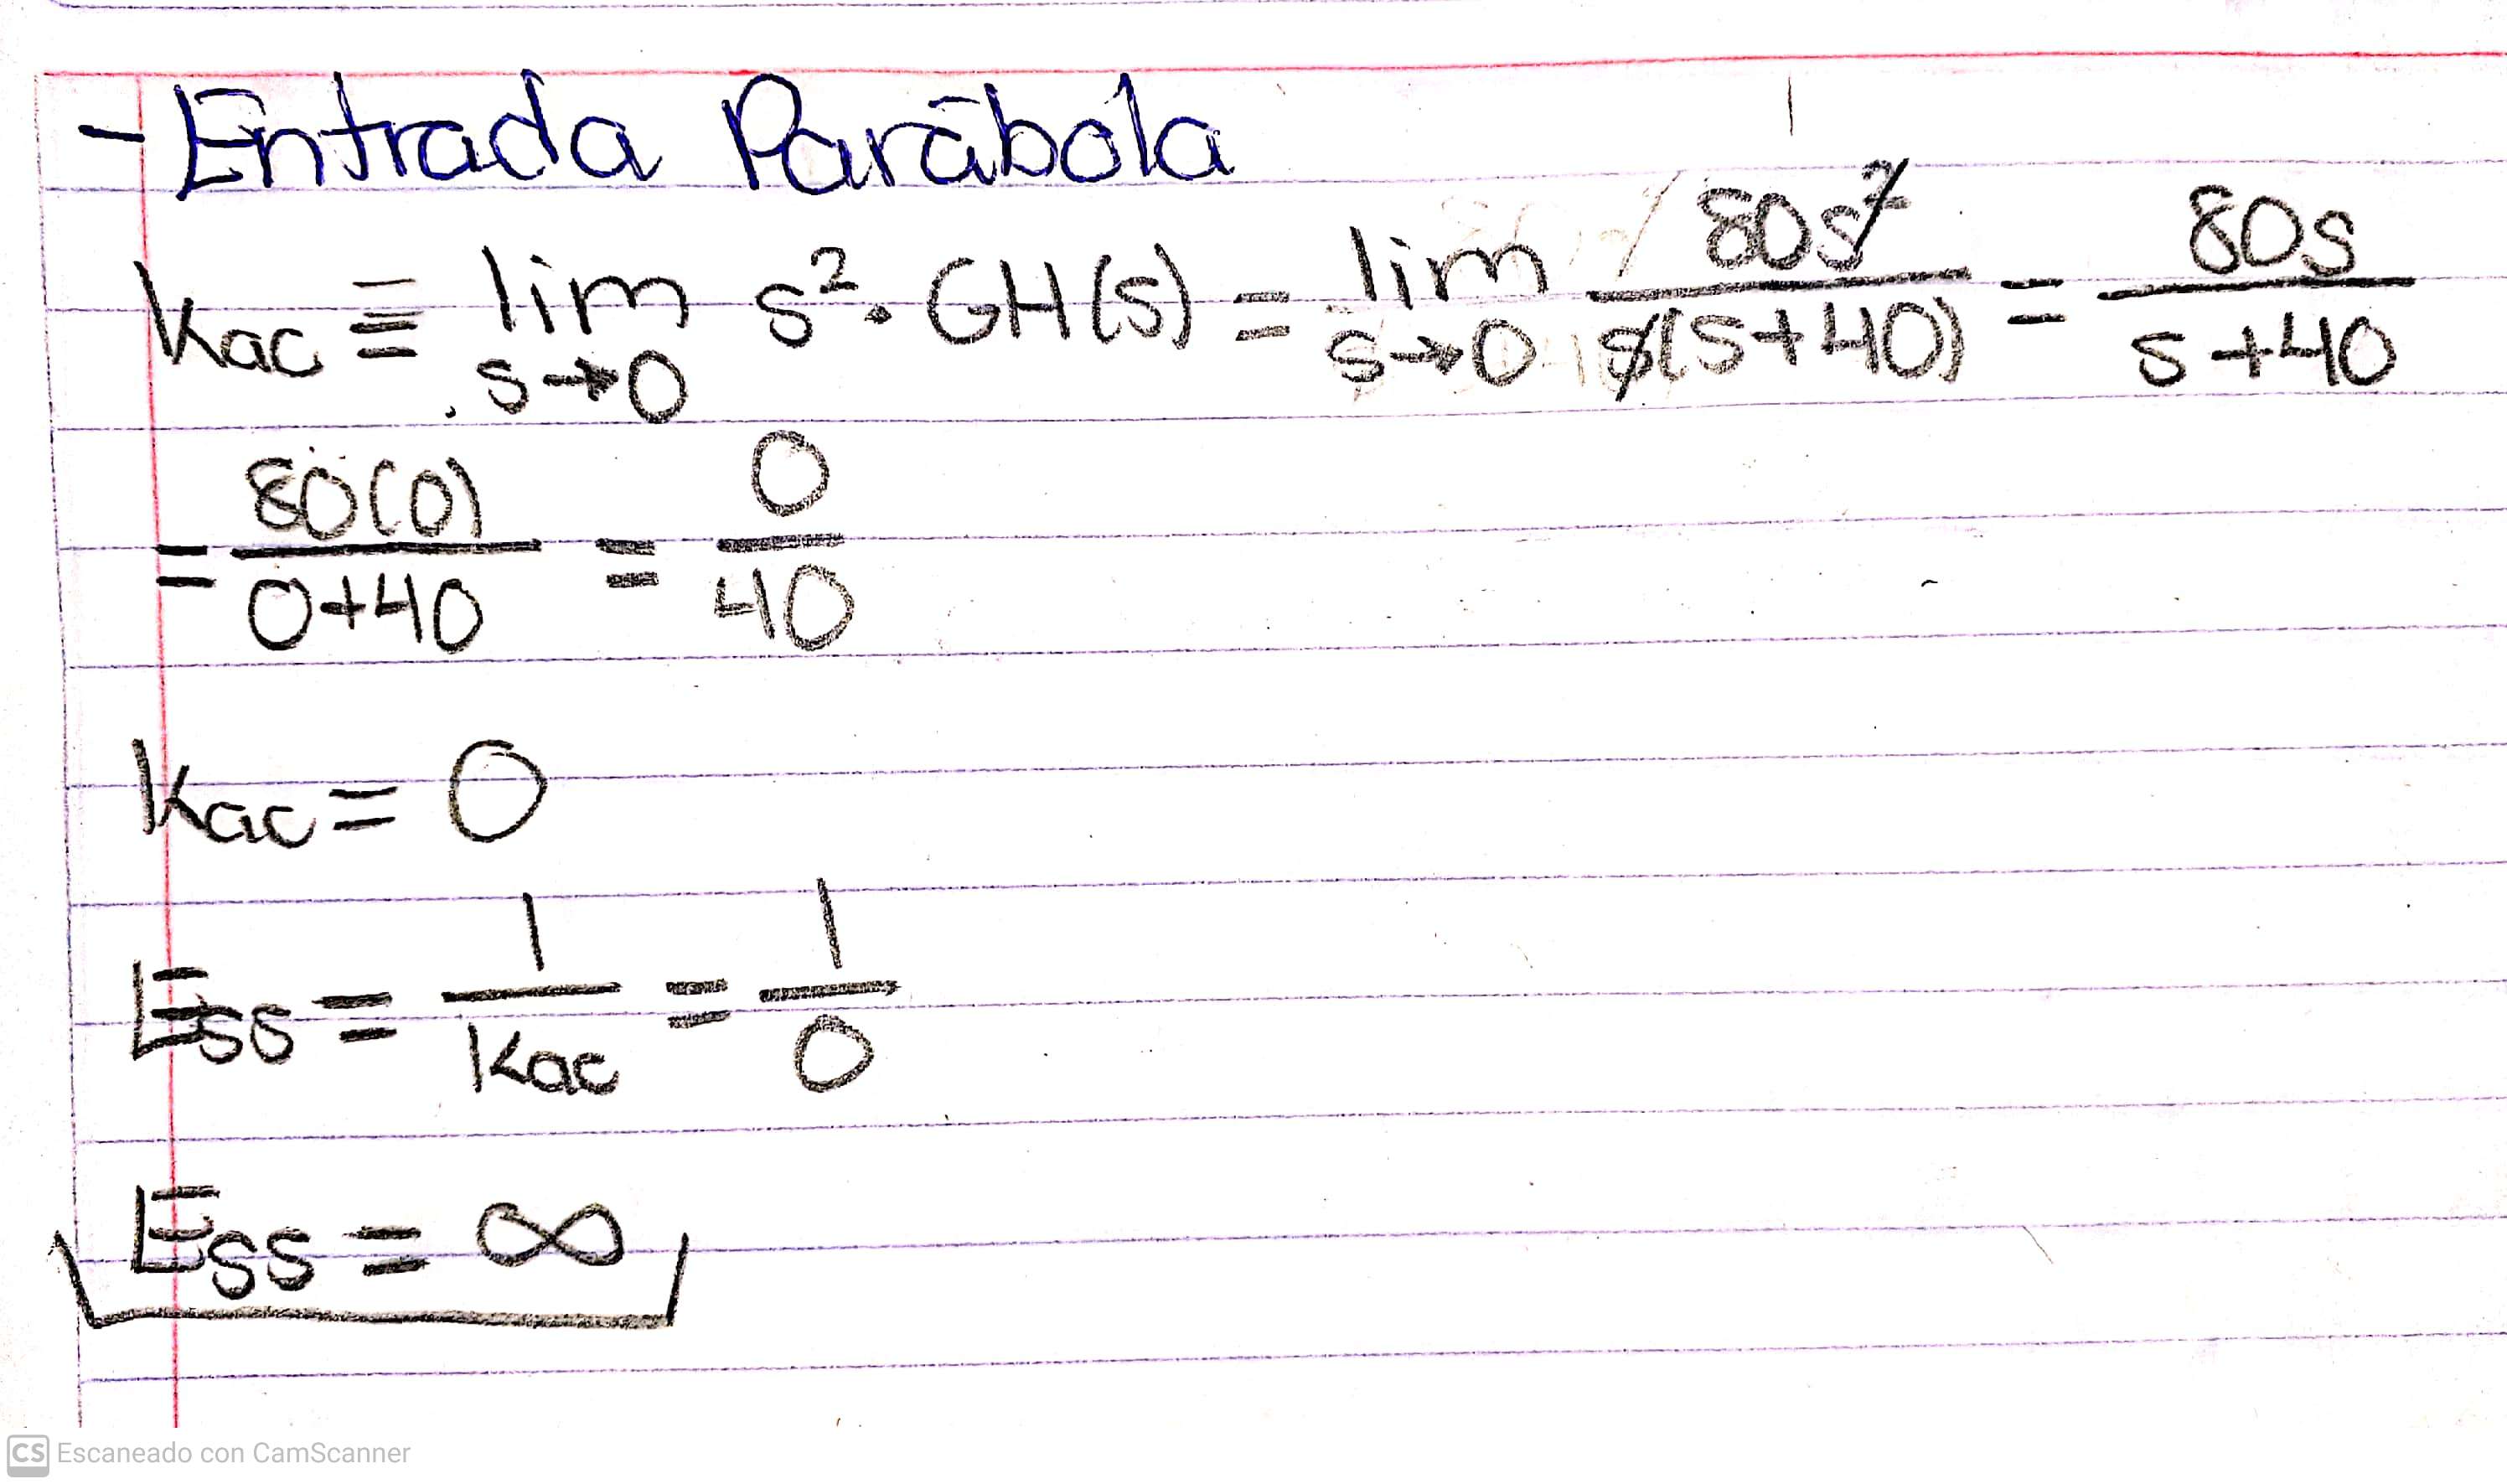 - Entrada Parábola
Kac ≡ lim s→0 s². GH(s) = lim s→0 80s²/s(s+40) = 80s/s+40
= 80(0)/0+40 = 0/40
Kac = 0
Ess = 1/Kac = 1/0
Ess = ∞
CS Escaneado con CamScanner